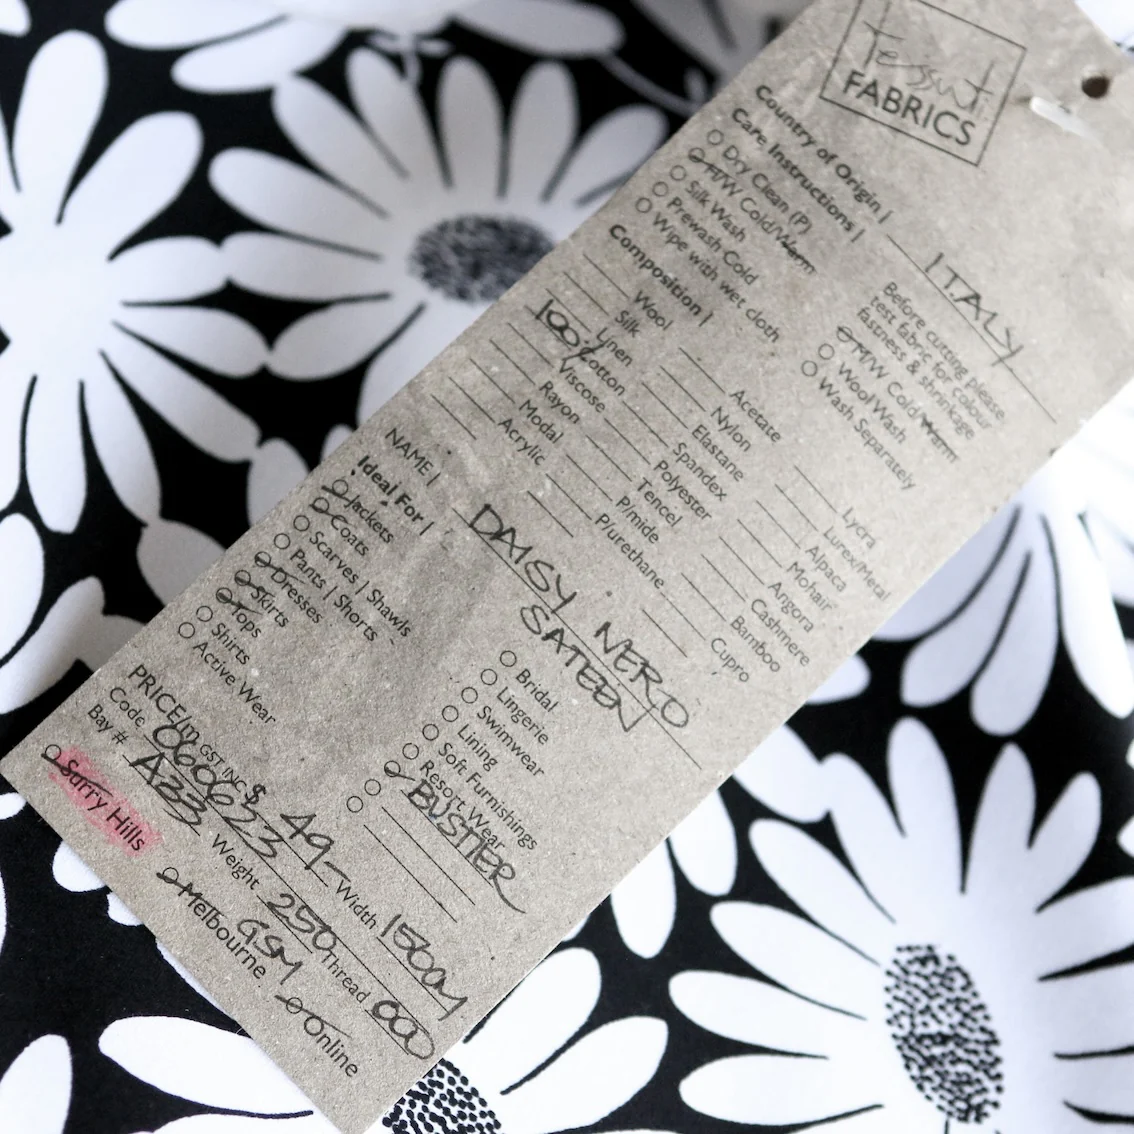 Tessuti
FABRICS
Country of Origin | ITALY
Care Instructions |
Dry Clean (P)
H/W Cold/Warm
Silk Wash
Prewash Cold
Wipe with wet cloth
Before cutting please
test fabric for colour
fastness & shrinkage
M/W Cold/Warm
Wool Wash
Wash Separately
Composition |
Wool
Silk
Linen
100% Cotton
Viscose
Rayon
Modal
Acrylic
Acetate
Nylon
Elastane
Spandex
Polyester
Tencel
P/mide
P/urethane
Lycra
Lurex/Metal
Alpaca
Mohair
Angora
Cashmere
Bamboo
Cupro
NAME | DAISY NERO
SATEEN
Ideal For |
Jackets
Coats
Scarves | Shawls
Pants | Shorts
Dresses
Skirts
Tops
Shirts
Active Wear
Bridal
Lingerie
Swimwear
Lining
Soft Furnishings
Resort Wear
BUSTIER
PRICE/m GST INC $ 49-
Width 150cm
Code 060623
Weight 250 GSM
Thread 000
Bay # A33
Surry Hills
Melbourne
Online